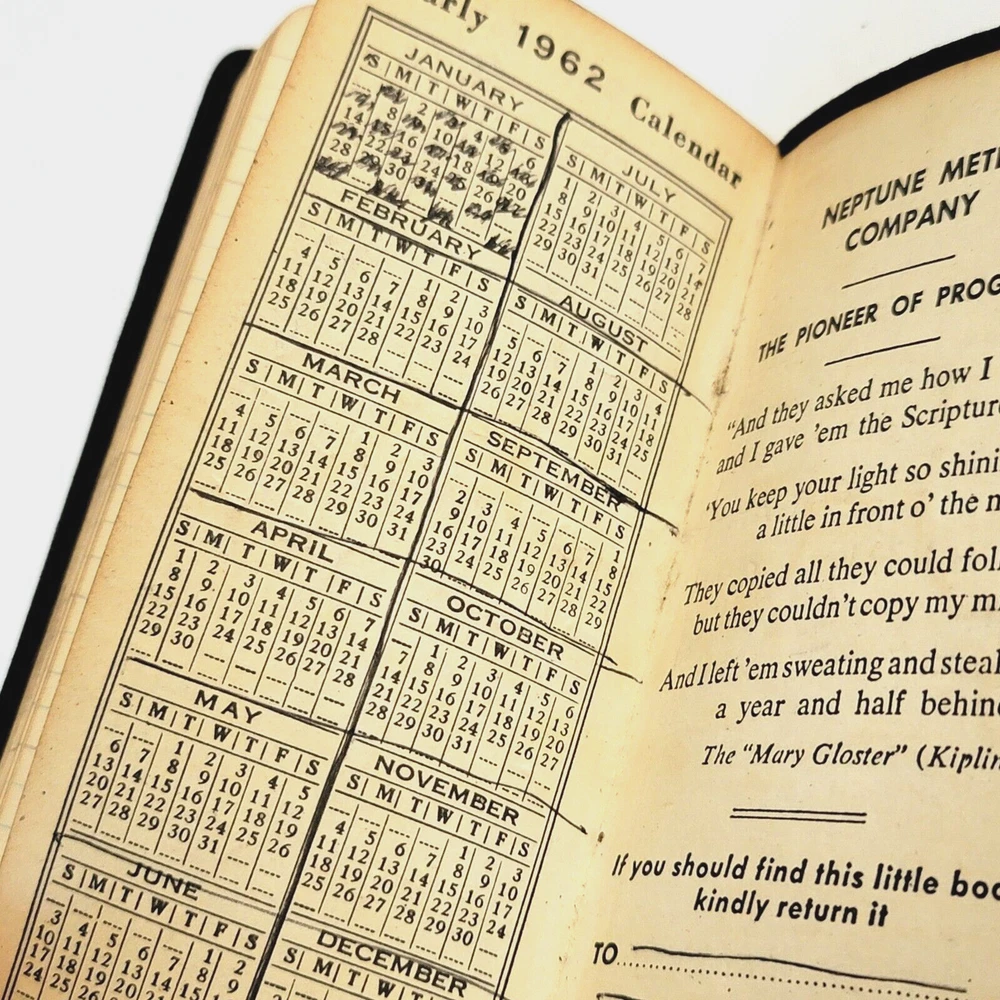 arly 1962 Calendar
JANUARY
S M T W T F S
2 4 6
8 10 12
14 16 18 20
22 24 26
28 30
FEBRUARY
S M T W T F S
1 2 3
4 5 6 7 8 9 10
11 12 13 14 15 16 17
18 19 20 21 22 23 24
25 26 27 28
MARCH
S M T W T F S
1 2 3
4 5 6 7 8 9 10
11 12 13 14 15 16 17
18 19 20 21 22 23 24
25 26 27 28 29 30 31
APRIL
S M T W T F S
1 2 3 4 5 6 7
8 9 10 11 12 13 14
15 16 17 18 19 20 21
22 23 24 25 26 27 28
29 30
MAY
S M T W T F S
1 2 3 4 5
6 7 8 9 10 11 12
13 14 15 16 17 18 19
20 21 22 23 24 25 26
27 28 29 30 31
JUNE
S M T W T F S
1 2
3 4 5 6 7 8 9
10 11 12 13 14 15
17 18 19 20 21
24 25 26
JULY
S M T W T F S
1 2 3 4 5 6 7
8 9 10 11 12 13 14
15 16 17 18 19 20 21
22 23 24 25 26 27 28
29 30 31
AUGUST
S M T W T F S
1 2 3 4
5 6 7 8 9 10 11
12 13 14 15 16 17 18
19 20 21 22 23 24 25
26 27 28 29 30 31
SEPTEMBER
S M T W T F S
1
2 3 4 5 6 7 8
9 10 11 12 13 14 15
16 17 18 19 20 21 22
23 24 25 26 27 28 29
30
OCTOBER
S M T W T F S
1 2 3 4 5 6
7 8 9 10 11 12 13
14 15 16 17 18 19 20
21 22 23 24 25 26 27
28 29 30 31
NOVEMBER
S M T W T F S
1 2 3
4 5 6 7 8 9 10
11 12 13 14 15 16 17
18 19 20 21 22 23 24
25 26 27 28 29 30
DECEMBER
S M T W T F S
NEPTUNE METE
COMPANY
THE PIONEER OF PROG
"And they asked me how I
and I gave 'em the Scriptur
'You keep your light so shini
a little in front o' the n
They copied all they could fol
but they couldn't copy my m
And I left 'em sweating and steal
a year and half behin
The "Mary Gloster" (Kiplin
If you should find this little boo
kindly return it
TO